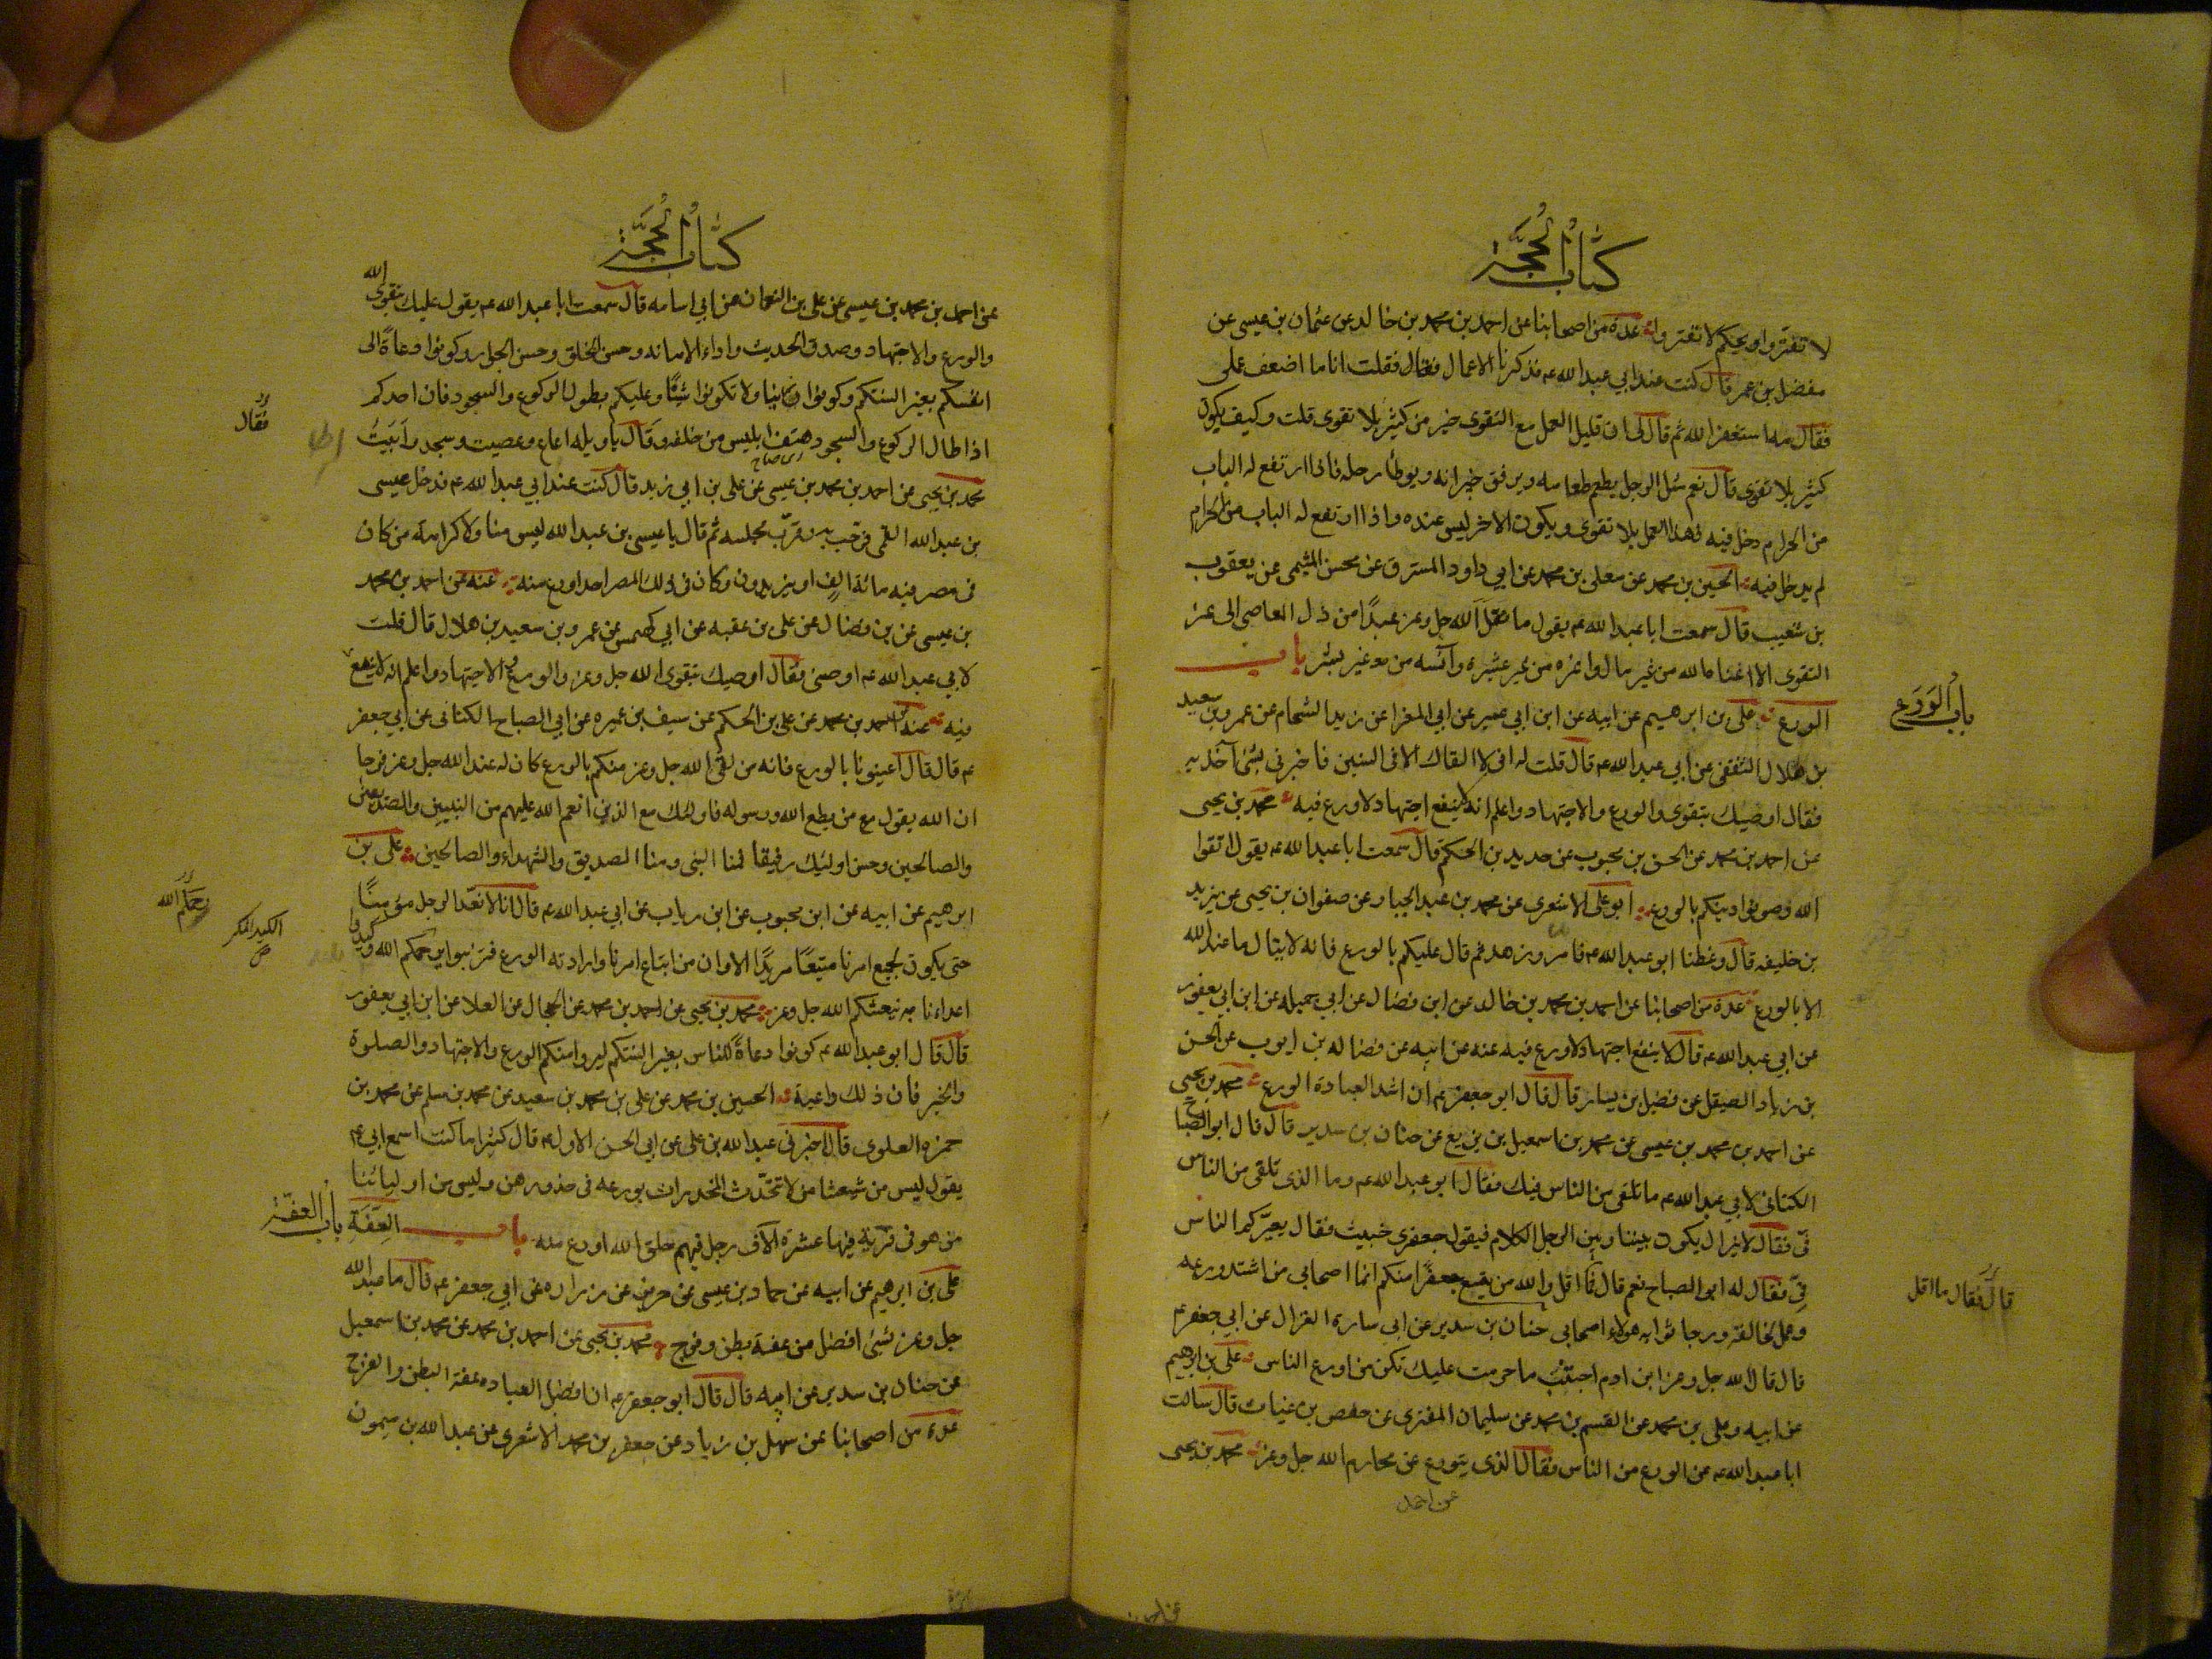 كتاب الحجة
لا تفتروا ويحكم لا تفتروا عدة من اصحابنا عن احمد بن محمد بن خالد عن عثمان بن عيسى عن
مفضل بن عمر قال كنت عند ابي عبد الله عه فذكرنا الاعمال فقال فقلت انا ما اضعف عملى
فقال مه استغفر الله ثم قال لى ان قليل العمل مع التقوى خير من كثير بلا تقوى قلت وكيف يكون
كثير بلا تقوى قال نعم مثل الرجل يطعم طعامه ويرفق جيرانه ويوطأ رحله فاذا ارتفع له الباب
من الحرام دخل فيه فهذا العمل بلا تقوى ويكون الاخر ليس عنده واذا ارتفع له الباب من الحرام
لم يدخل فيه الحسين بن محمد عن معلى بن محمد عن ابي داود المسترق عن محسن الميثمى عن يعقوب
بن شعيب قال سمعت ابا عبد الله عه يقول ما نقل الله جل وعز عبدًا من ذل المعاصى الى عز
التقوى الا اغناه الله من غير مال واعزه من غير عشيرة وآنسه من غير بشر باب
باب الورع
الورع على بن ابرهيم عن ابيه عن ابن ابي عمير عن ابي المغرا عن زيد الشحام عن عمرو بن سعيد
بن هلال الثقفى عن ابي عبد الله عه قال قلت له انى لا القاك الا فى السنين فاخبرنى بشئ آخذ به
فقال اوصيك بتقوى والورع والاجتهاد واعلم انه لا ينفع اجتهاد لا ورع فيه محمد بن يحيى
عن احمد بن محمد عن الحسن بن محبوب عن حديد بن الحكم قال سمعت ابا عبد الله عه يقول اتقوا
الله وصونوا دينكم بالورع ابو على الاشعرى عن محمد بن عبد الجبار عن صفوان بن يحيى عن يزيد
بن خليفه قال وعظنا ابو عبد الله عه فامر وزهد ثم قال عليكم بالورع فانه لا ينال ما عند الله
الا بالورع عدة من اصحابنا عن احمد بن محمد بن خالد عن ابن فضال عن ابي جميله عن ابن ابي يعفور
عن ابي عبد الله عه قال لا ينفع اجتهاد لا ورع فيه عنه عن ابيه عن فضاله بن ايوب عن الحسن
بن زياد الصيقل عن فضيل بن يسار قال قال ابو جعفر عه ان اشد العبادة الورع محمد بن يحيى
عن احمد بن محمد بن عيسى عن محمد بن اسمعيل بن بزيع عن حنان بن سدير قال قال ابو الصباح
الكنانى لابي عبد الله عه ما نلقى من الناس فيك فقال ابو عبد الله عه وما الذى تلقى من الناس
فىّ فقال لا يزال يكون بيننا وبين الرجل الكلام فيقول جعفرى خبيث فقال يعيّركم الناس
بى فقال له ابو الصباح نعم قال ما اقل والله من يتبع جعفرًا منكم انما اصحابي من اشتد ورعه
قال فقال ما اقل
وعمل لخالقه ورجا ثوابه هولاء اصحابي حنان بن سدير عن ابى سارة الغزال عن ابي جعفر عه
قال قال الله جل وعز ابن ادم اجتنب ما حرمت عليك تكن من اورع الناس على بن ابرهيم
عن ابيه وعلى بن محمد عن القسم بن محمد عن سليمان المنقرى عن حفص بن غياث قال سالت
ابا عبد الله عه عن الورع من الناس فقال الذى يتورع عن محارم الله جل وعز محمد بن يحيى
عن احمد
كتاب الحجة
عن احمد بن محمد بن عيسى عن على بن النعمان عن ابي اسامه قال سمعت ابا عبد الله عه يقول عليك بتقوى الله
والورع والاجتهاد وصدق الحديث واداء الامانه وحسن الخلق وحسن الجوار وكونوا دعاة الى
انفسكم بغير السنتكم وكونوا زينا ولا تكونوا شينًا وعليكم بطول الركوع والسجود فان احدكم
اذا طال الركوع والسجود هتف ابليس من خلفه وقال يا ويله اطاع وعصيت وسجد وابيت
فقال
اى صاح
محمد بن يحيى عن احمد بن محمد بن عيسى عن على بن ابي زيد قال كنت عند ابي عبد الله عه فدخل عيسى
بن عبد الله القمى فرحب به وقرب مجلسه ثم قال يا عيسى بن عبد الله ليس منا ولا كرامة من كان
فى مصر فيه مائة الف او يزيدون وكان فى ذلك المصر احد اورع منه عنه عن احمد بن محمد
بن عيسى عن بن فضال عن على بن عقبه عن ابي كهمس عن عمرو بن سعيد بن هلال قال قلت
لابي عبد الله عه اوصنى فقال اوصيك بتقوى الله جل وعز والورع والاجتهاد واعلم انه لا ينفع
فيه عنه عن احمد بن محمد عن على بن الحكم عن سيف بن عميره عن ابي الصباح الكنانى عن ابي جعفر
عه قال قال اعينونا بالورع فانه من لقى الله جل وعز منكم بالورع كان له عند الله جل وعز فرجا
ان الله يقول من يطع الله ورسوله فاولئك مع الذين انعم الله عليهم من النبيين والصديقين
والصالحين وحسن اولئك رفيقا فمنا النبى ومنا الصديق والشهداء والصالحين على بن
ابرهيم عن ابيه عن ابن محبوب عن ابن رياب عن ابي عبد الله عه قال انا لا نعد الرجل مؤمنًا
حتى يكون لجميع امرنا متبعًا مريدًا الا وان من اتباع امرنا وارادته الورع فتزينوا به يرحمكم الله وكيدوا
رحمكم الله
الكيد المكر
اعداءنا به ينعشكم الله جل وعز محمد بن يحيى عن احمد بن محمد عن الحجال عن العلا عن ابن ابي يعفور
قال قال ابو عبد الله عه كونوا دعاة للناس بغير السنتكم ليروا منكم الورع والاجتهاد والصلوة
والخير فان ذلك داعية الحسين بن محمد عن على بن محمد بن سعيد عن محمد بن مسلم عن محمد بن
حمزه العلوى قال اخبرنى عبد الله بن على عن ابي الحسن الاول عه قال كثيرا ما كنت اسمع ابي عه
يقول ليس من شيعتنا من لا تتحدث المخدرات بورعه فى خدورهن وليس من اوليائنا
من هو فى قرية فيها عشرة آلاف رجل فيهم خلق الله اورع منه باب العفة
باب العفة
على بن ابرهيم عن ابيه عن حماد بن عيسى عن حريز عن زراره عن ابي جعفر عه قال ما عبد الله
جل وعز بشئ افضل من عفة بطن وفرج محمد بن يحيى عن احمد بن محمد عن محمد بن اسمعيل
عن حنان بن سدير عن ابيه قال قال ابو جعفر عه ان افضل العباده عفة البطن والفرج
عدة من اصحابنا عن سهل بن زياد عن جعفر بن محمد الاشعرى عن عبد الله بن ميمون